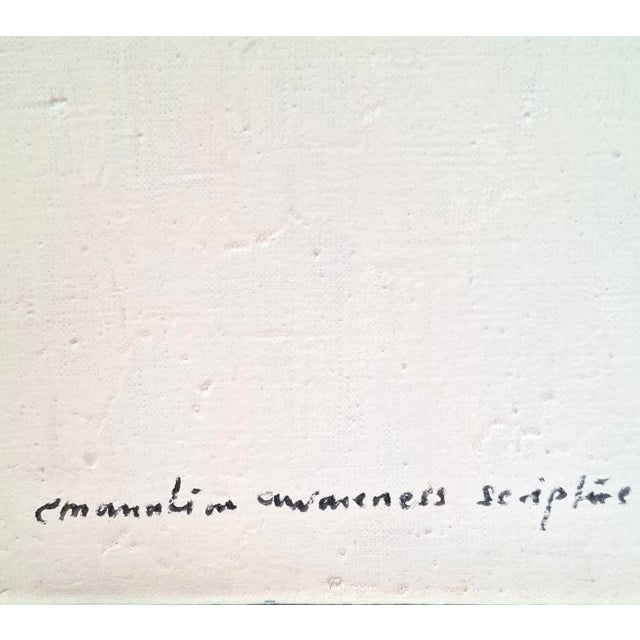 emanation awareness scripture